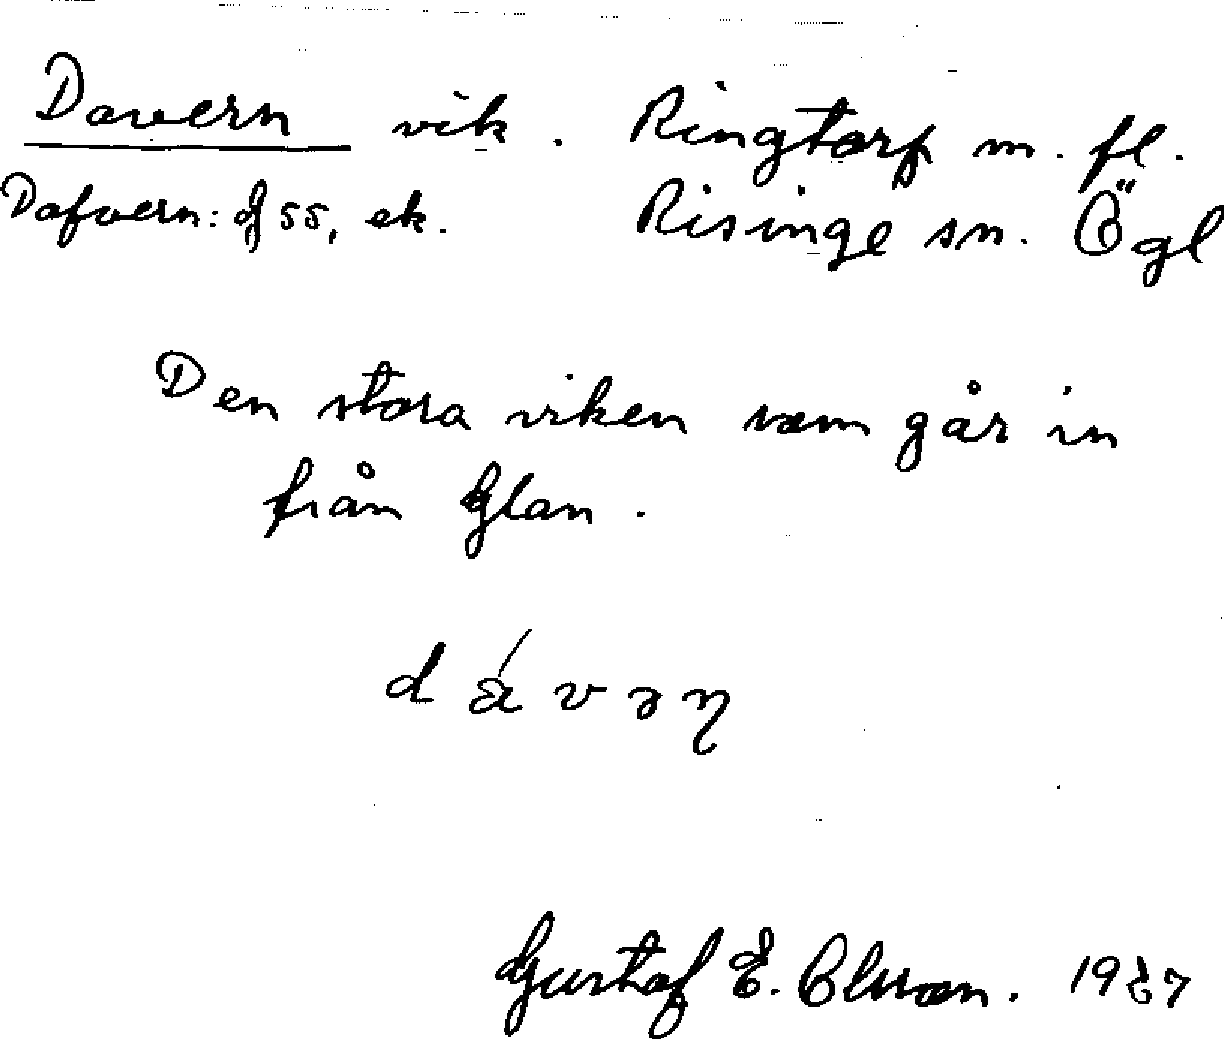 Davern vik. Ringtorp m. fl.
Dafvern: G 55, ek. Risinge sn. Ögl
Den stora viken som går in
från Glan.
d á v ə n
Gustaf E. Olsson.